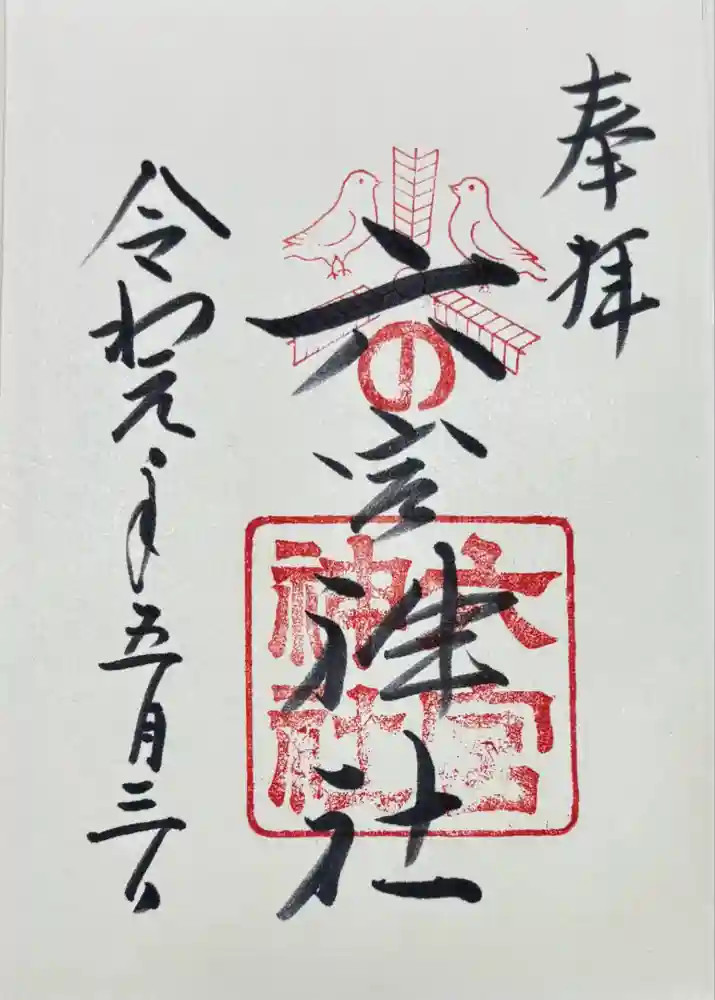 奉拝
六宮神社
の
六宮
神社
令和元年五月三日